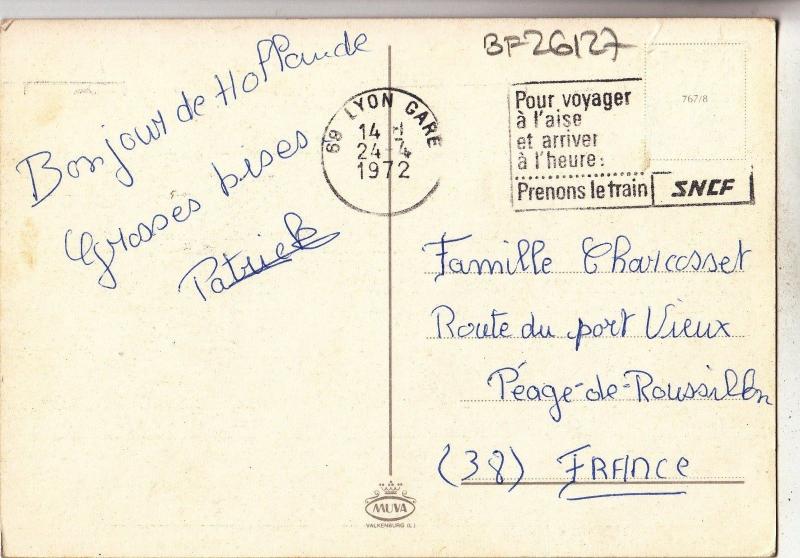 Bonjour de Hollande
Grosses bises
Patrick
BF26127
69 LYON GARE
14-H
24-4
1972
Pour voyager
à l'aise
et arriver
à l'heure:
Prenons le train SNCF
767/8
Famille Charcosset
Route du port Vieux
Péage-de-Roussillon
(38) FRANCE
MUVA
VALKENBURG (L.)